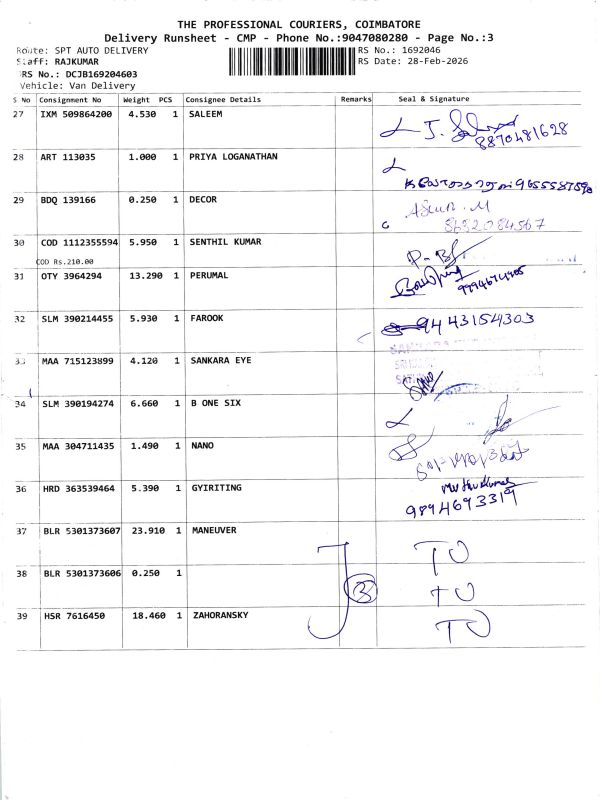 THE PROFESSIONAL COURIERS, COIMBATORE
Delivery Runsheet - CMP - Phone No.:9047080280 - Page No.:3
Route: SPT AUTO DELIVERY RS No.: 1692046
Staff: RAJKUMAR RS Date: 28-Feb-2026
RS No.: DCJB169204603
Vehicle: Van Delivery
S No Consignment No Weight PCS Consignee Details Remarks Seal & Signature
27 IXM 509864200 4.530 1 SALEEM
8870481628
28 ART 113035 1.000 1 PRIYA LOGANATHAN
29 BDQ 139166 0.250 1 DECOR
8692084567
30 COD 1112355594 5.950 1 SENTHIL KUMAR
COD Rs.210.00
31 OTY 3964294 13.290 1 PERUMAL
32 SLM 390214455 5.930 1 FAROOK
9443154303
33 MAA 715123899 4.120 1 SANKARA EYE
34 SLM 390194274 6.660 1 B ONE SIX
35 MAA 304711435 1.490 1 NANO
36 HRD 363539464 5.390 1 GYIRITING
9894693319
37 BLR 5301373607 23.910 1 MANEUVER TO
38 BLR 5301373606 0.250 1 3 TO
39 HSR 7616450 18.460 1 ZAHORANSKY TO